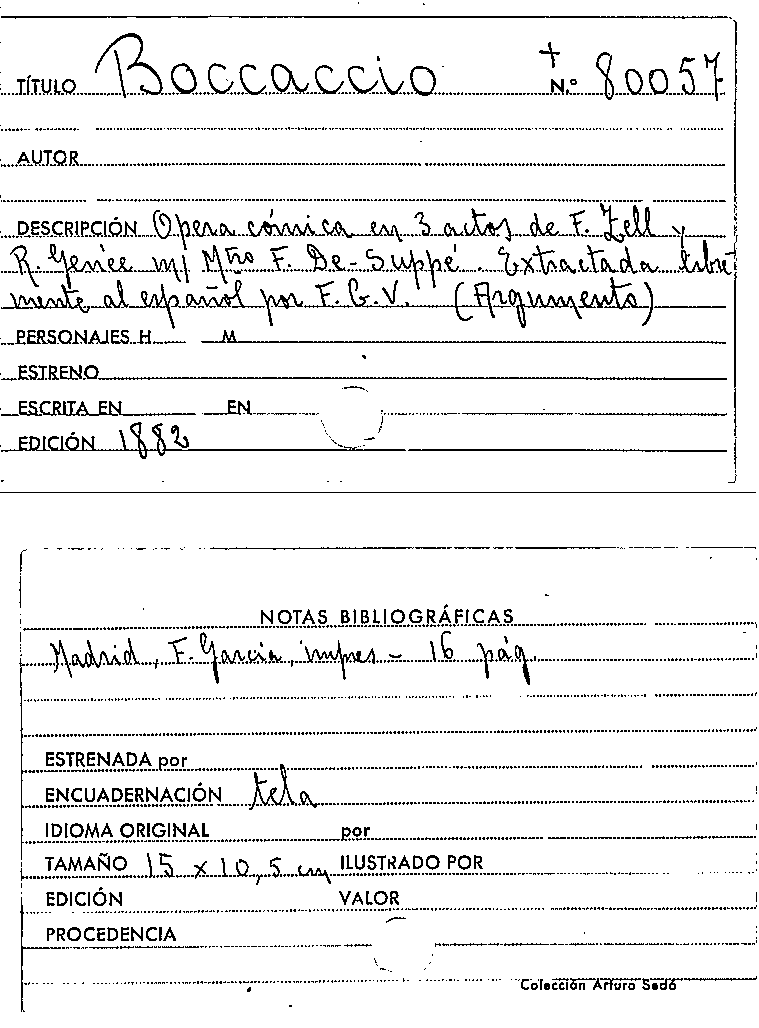 TÍTULO Boccaccio + N.º 80057
AUTOR
DESCRIPCIÓN Opera cómica en 3 actos de F. Zell y
R. Genée m/ Mtro F. De-Suppé. Extractada libre
mente al español por F. G. V. (Argumento)
PERSONAJES H M
ESTRENO
ESCRITA EN EN
EDICIÓN 1882
NOTAS BIBLIOGRÁFICAS
Madrid, F. Garcia, impres - 16 pág.
ESTRENADA por
ENCUADERNACIÓN tela
IDIOMA ORIGINAL por
TAMAÑO 15 x 10,5 cm ILUSTRADO POR
EDICIÓN VALOR
PROCEDENCIA
Colección Arturo Sedó